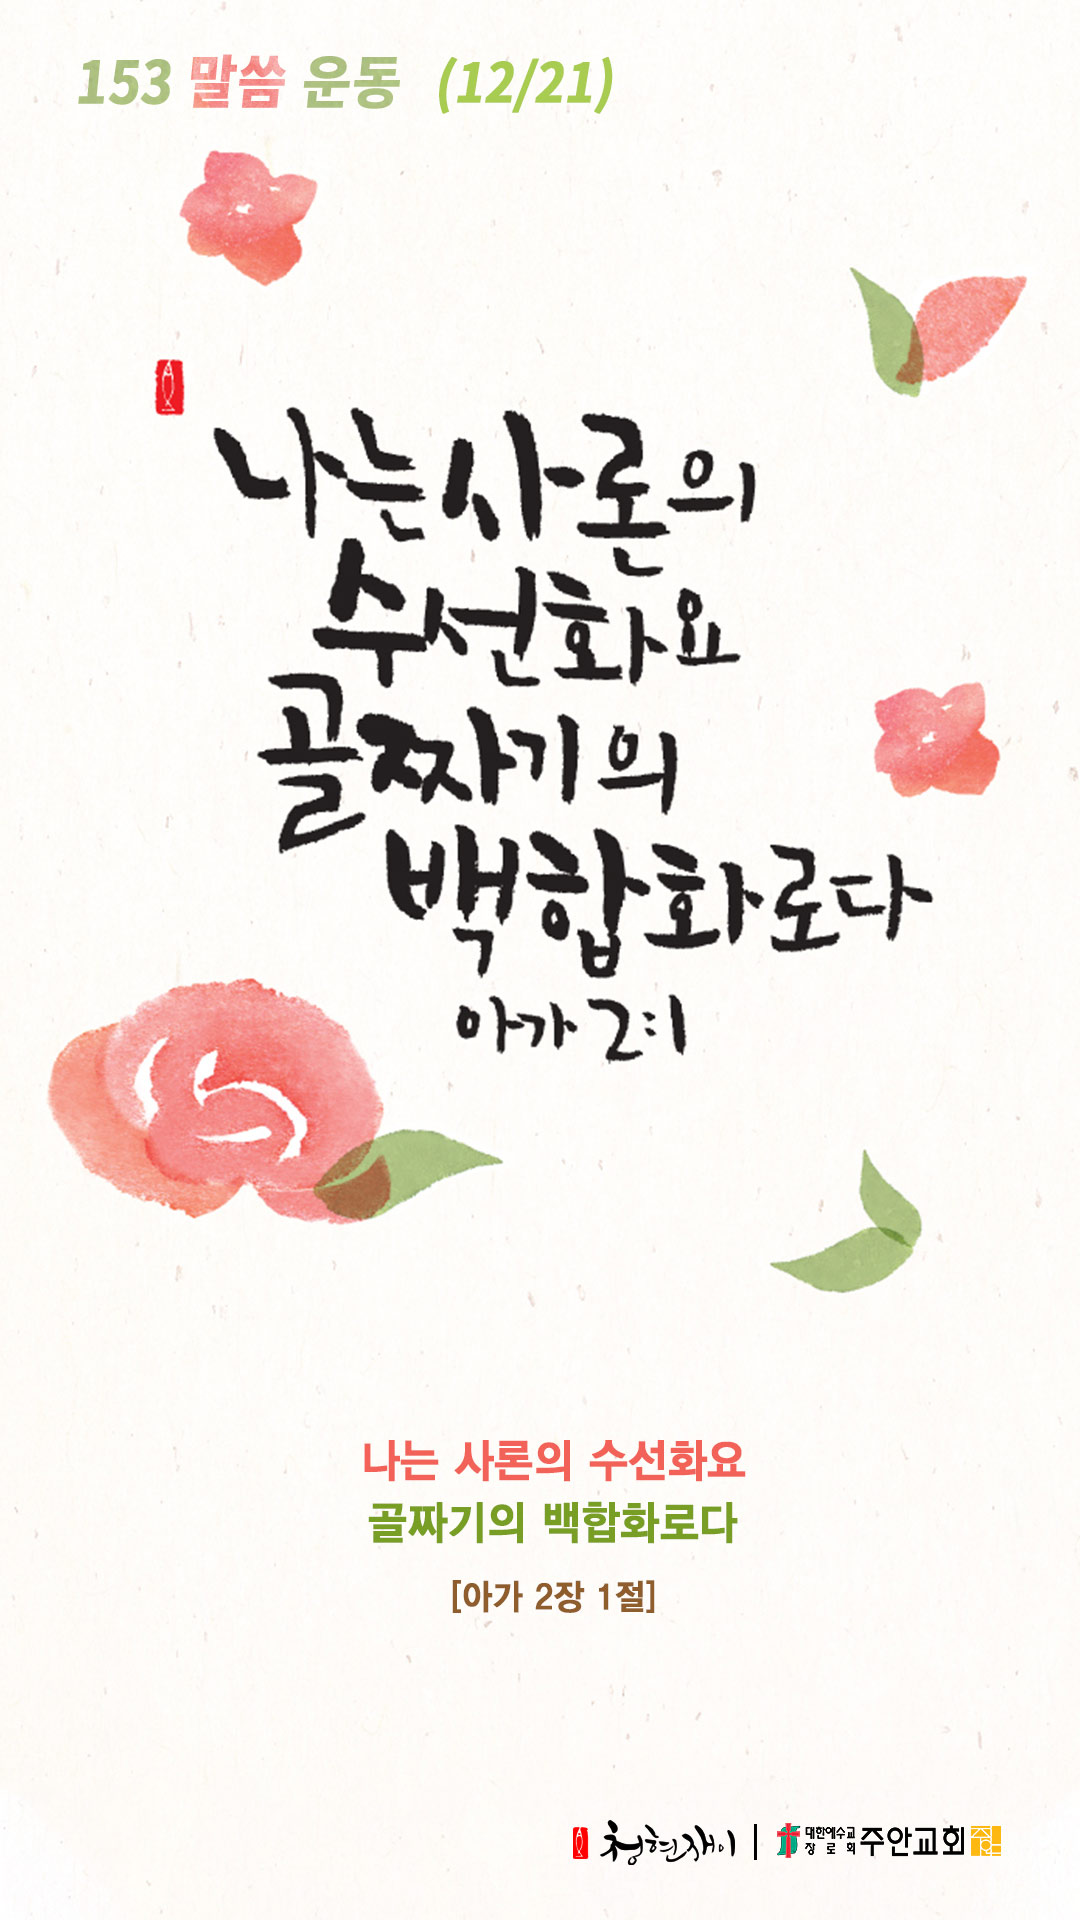 153 말씀 운동 (12/21)
나는 사론의
수선화요
골짜기의
백합화로다
아가 2:1
나는 사론의 수선화요
골짜기의 백합화로다
[아가 2장 1절]
청현재이 | 대한예수교장로회 주안교회